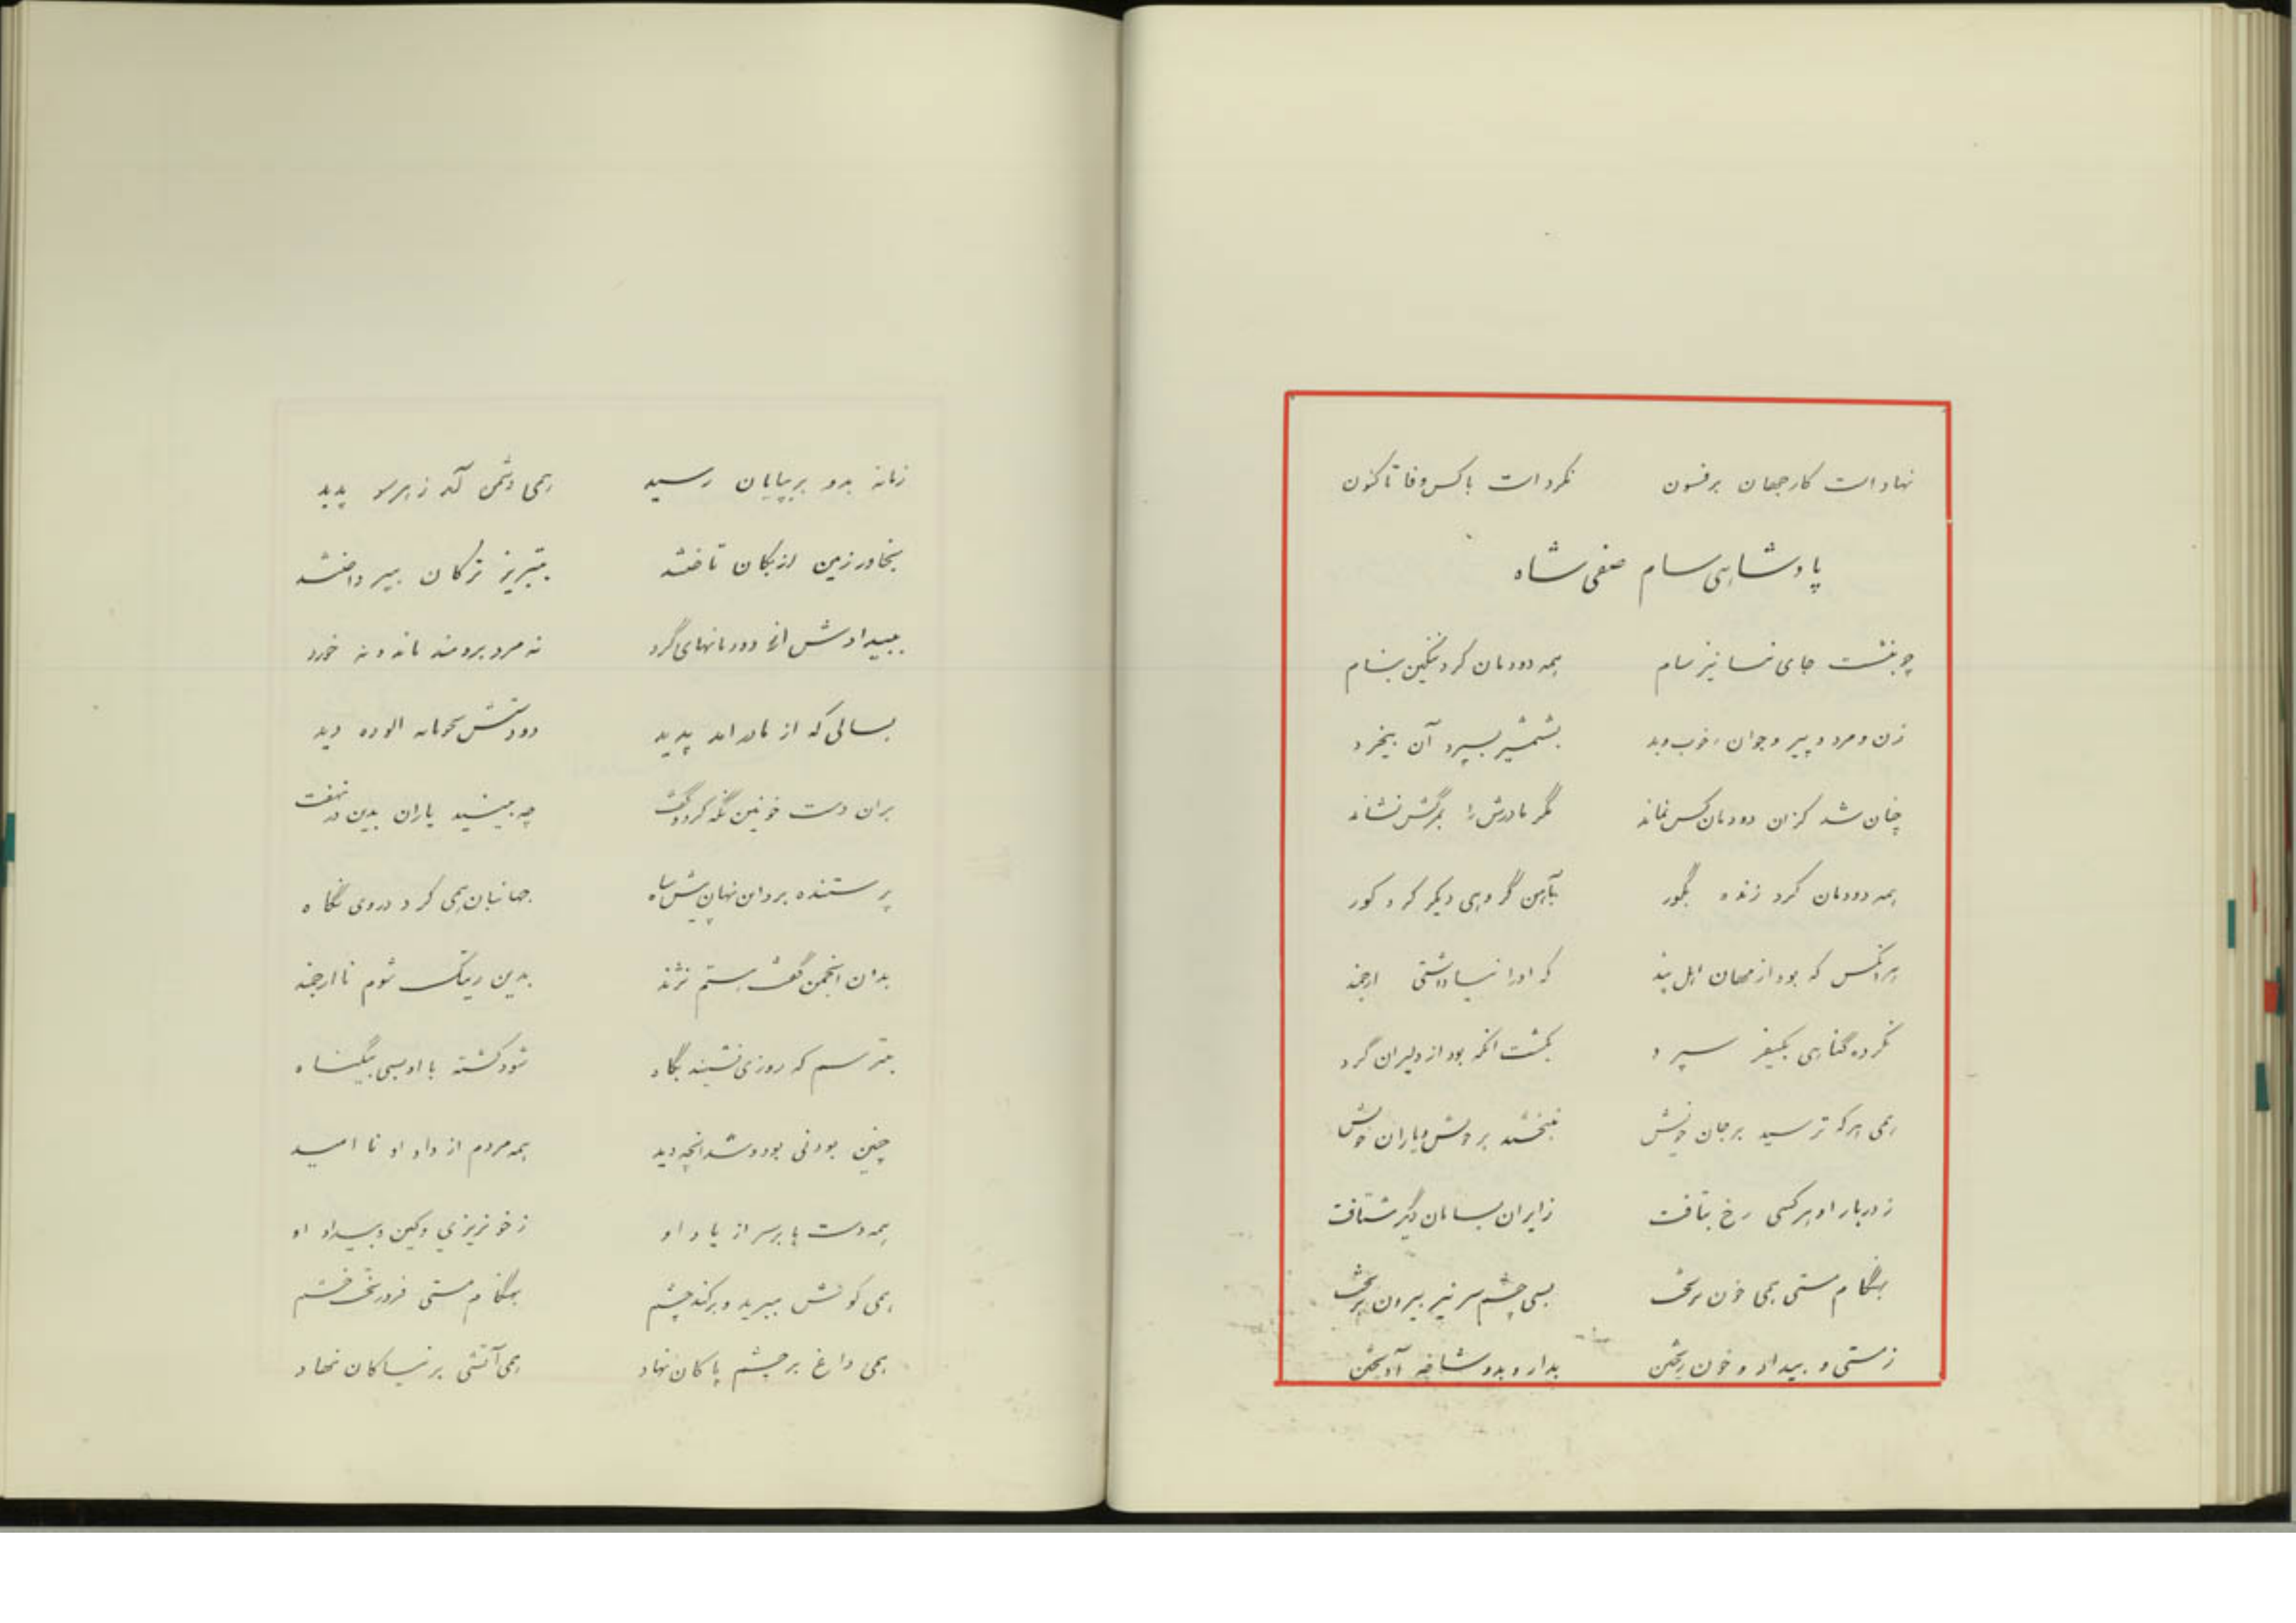 نهاد است کار جهان بر فسون نکرد است با کس وفا تا کنون
پادشاهی سام صفی شاه
چو بنشست جای نیا نیز سام همه دودمان کرد ننگین بنام
زن و مرد و پیر و جوان، خوب و بد بشمشیر بسپرد آن بیخرد
چنان شد کزان دودمان کس نماند مگر مادرش را بمرگش نشاند
همه دودمان کرد زنده بگور بآهن گروهی دیگر کرد کور
هرانکس که بود از مهان اهل پند که او را نیا داشتی ارجمند
نکرده گناهی بکیفر سپرد بکشت انکه بود از دلیران گرد
همی هر که ترسید بر جان خویش نبخشد بر خویش و یاران خویش
ز دربار او هر کسی رخ بتافت ز ایران بسامان دیگر شتافت
بهنگام مستی همی خون بریخت بسی چشم سر نیز بیرون بریخت
ز مستی و بیداد و خون ریختن بدار و بدو شاخه آویختن
زمانه بدو بر بپایان رسید همی دشمن آمد ز هر سو پدید
بخاور زمین ازبکان تاختند بتبریز ترکان بپرداختند
ببیدادش از دودمانهای گرد نه مرد برومند ماند و نه خورد
بسالی که از مادر امد پدید دو دستش بخونابه الوده دید
بران دست خونین نگه کرد و گفت چه بینید یاران بدین در نهفت
پرستنده برد این نهان پیش شاه جهانبان همی کرد در وی نگاه
بدان انجمن گفت هستم نژند بدین ریدک شوم نا ارجمند
بترسم که روزی نشیند بگاه شود کشته با او بسی بیگناه
چنین بودنی بود و شد انچه دید همه مردم از داد او نا امید
همه دست ها بر سر از یاد او ز خونریزی و کین و بیداد او
همی گوش ببرید و برکند چشم بهنگام مستی فرو ریخت خشم
همی داغ بر چشم پاکان نهاد همی آتشی بر نیاکان نهاد